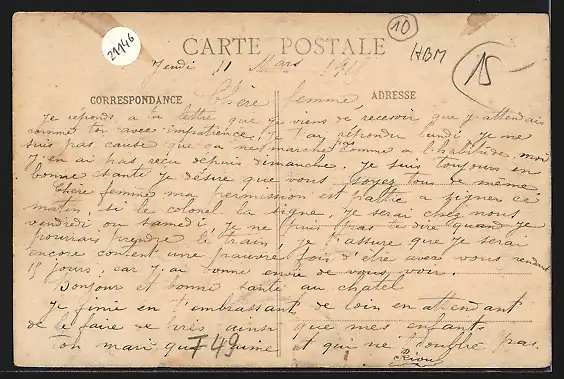 21146
10
HBM
15
CARTE POSTALE
Jeudi 11 Mars
CORRESPONDANCE
ADRESSE
Chère femme
Je réponds a ta lettre que je viens de recevoir que j'attendais
comme ton avec impatience. Je t'ai répondu lundi je ne
suis pas cause que ça ne marche pas comme a l'habitude. moi
j'en ai pas reçu depuis dimanche. je suis toujours en
bonne santé je désire que vous soyez tous de même
Chère femme ma permission est partie a signer ce
matin, si le colonel la signe, je serai chez nous
vendredi ou samedi, je ne puis pas te dire quand je
pourrais prendre le train, je t'assure que je serai
encore content une pauvre fois d'être avec vous
15 jours, car j'ai bonne envie de vous voir.
Bonjour et bonne santé au chatel
Je finie en t'embrassant de loin en attendant
de le faire de très ainsi que mes enfants
ton mari qui t'aime et qui ne t'oublie pas.
749